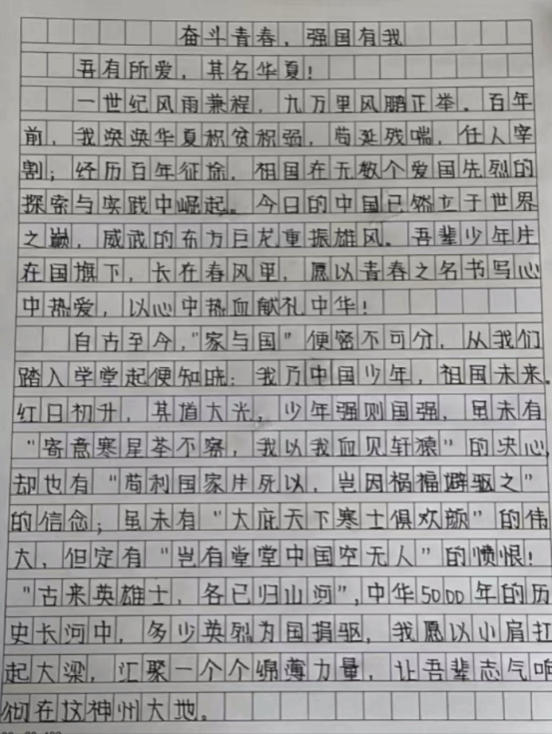 奋斗青春，强国有我
吾有所爱，其名华夏！
一世纪风雨兼程，九万里风鹏正举。百年
前，我泱泱华夏积贫积弱，苟延残喘，任人宰
割；经历百年征途，祖国在无数个爱国先烈的
探索与实践中崛起。今日的中国已然立于世界
之巅，威武的东方巨龙重振雄风。吾辈少年生
在国旗下，长在春风里，愿以青春之名书写心
中热爱，以心中热血献礼中华！
自古至今，"家与国"便密不可分，从我们
踏入学堂起便知晓：我乃中国少年，祖国未来。
红日初升，其道大光，少年强则国强，虽未有
"寄意寒星荃不察，我以我血见轩猿"的决心，
却也有"苟利国家生死以，岂因祸福避驱之"
的信念；虽未有"大庇天下寒士俱欢颜"的伟
大，但定有"岂有堂堂中国空无人"的愤恨！
"古来英雄士，各已归山河"，中华5000年的历
史长河中，多少英烈为国捐驱，我愿以小肩扛
起大梁，汇聚一个个绵薄力量，让吾辈志气响
彻在这神州大地。